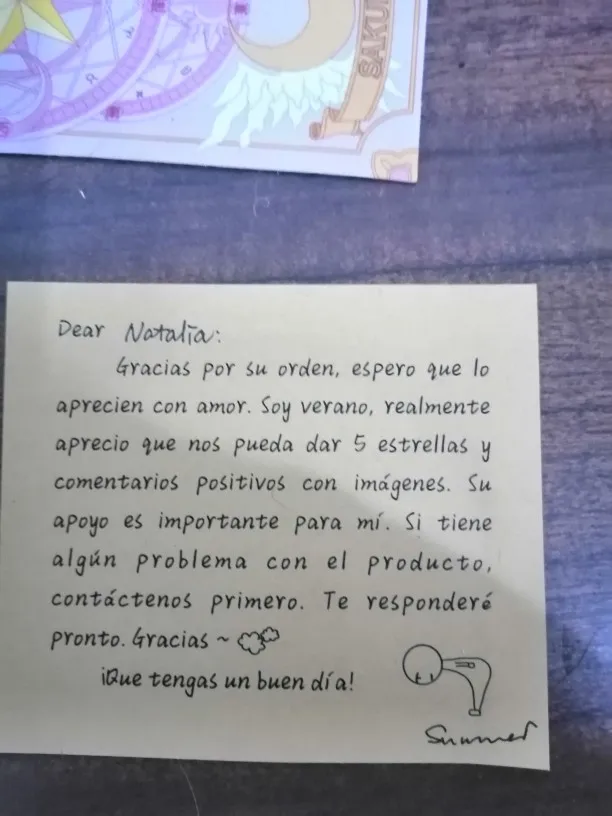 SAKU
Dear Natalia:
Gracias por su orden, espero que lo
aprecien con amor. Soy verano, realmente
aprecio que nos pueda dar 5 estrellas y
comentarios positivos con imágenes. Su
apoyo es importante para mí. Si tiene
algún problema con el producto,
contáctenos primero. Te responderé
pronto. Gracias ~
¡Que tengas un buen día!
Summer